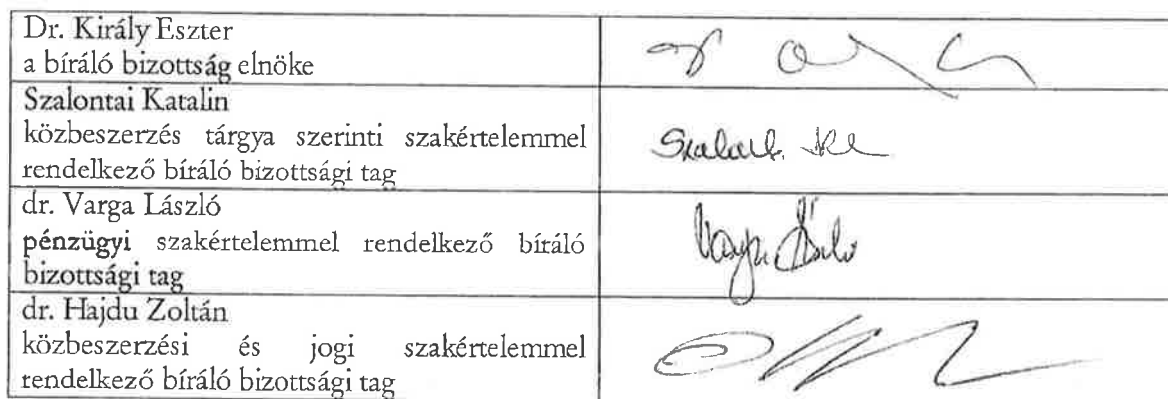 Dr. Király Eszter
a bíráló bizottság elnöke
Szalontai Katalin
közbeszerzés tárgya szerinti szakértelemmel
rendelkező bíráló bizottsági tag
dr. Varga László
pénzügyi szakértelemmel rendelkező bíráló
bizottsági tag
dr. Hajdu Zoltán
közbeszerzési és jogi szakértelemmel
rendelkező bíráló bizottsági tag